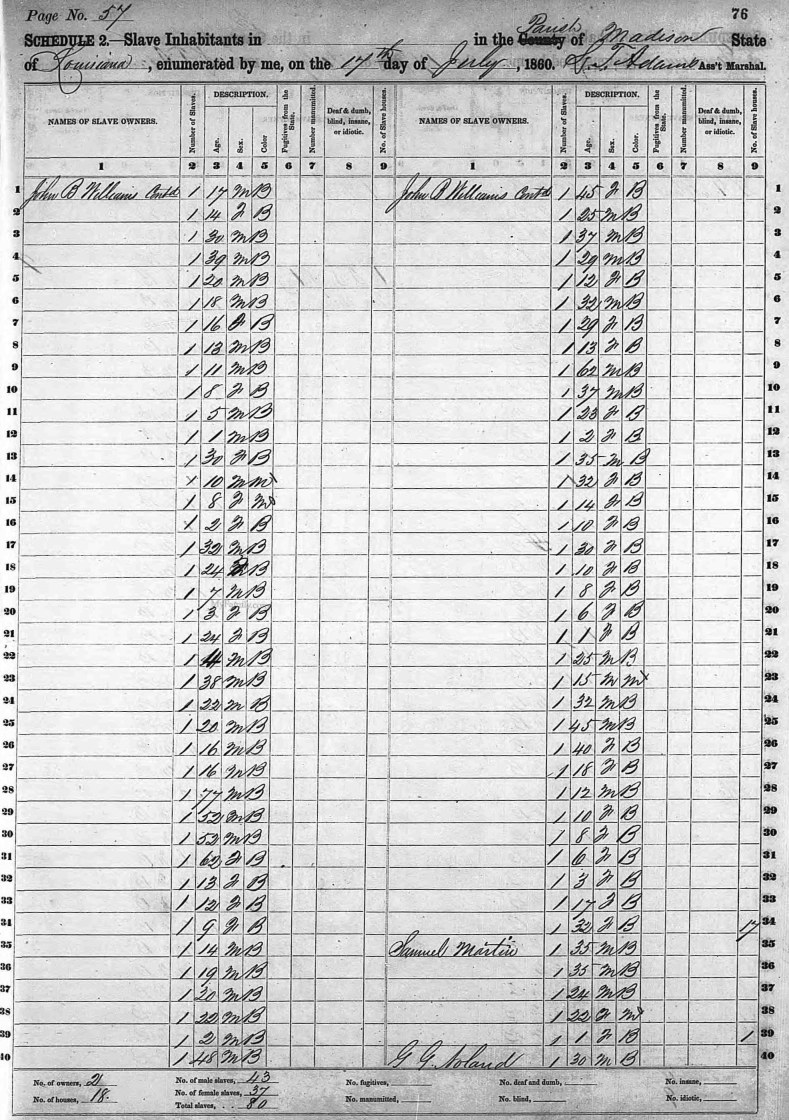 Page No. 57
76
SCHEDULE 2.—Slave Inhabitants in in the County Parish of Madison State
of Louisiana, enumerated by me, on the 17th day of July, 1860. Adams Ass't Marshal.
NAMES OF SLAVE OWNERS. Number of Slaves. DESCRIPTION. Age. Sex. Color. Fugitives from the State. Number manumitted. Deaf & dumb, blind, insane, or idiotic. No. of Slave houses. NAMES OF SLAVE OWNERS. Number of Slaves. DESCRIPTION. Age. Sex. Color. Fugitives from the State. Number manumitted. Deaf & dumb, blind, insane, or idiotic. No. of Slave houses.
1 2 3 4 5 6 7 8 9 1 2 3 4 5 6 7 8 9
1 John B Williams Contd 1 17 M B John B Williams Contd 1 45 F B 1
2 1 14 F B 1 25 M B 2
3 1 30 M B 1 37 M B 3
4 1 39 M B 1 29 M B 4
5 1 20 M B 1 12 F B 5
6 1 18 M B 1 32 M B 6
7 1 16 F B 1 29 F B 7
8 1 13 M B 1 13 F B 8
9 1 11 M B 1 62 M B 9
10 1 8 F B 1 37 M B 10
11 1 5 M B 1 23 F B 11
12 1 1 M B 1 2 F B 12
13 1 30 F B 1 35 M B 13
14 1 10 M M 1 32 F B 14
15 1 8 F M 1 14 F B 15
16 1 2 F B 1 10 F B 16
17 1 32 M B 1 30 F B 17
18 1 24 B 1 10 F B 18
19 1 7 M B 1 8 F B 19
20 1 3 F B 1 6 F B 20
21 1 24 F B 1 1 F B 21
22 1 M B 1 25 M B 22
23 1 38 M B 1 15 M M 23
24 1 22 M B 1 32 M B 24
25 1 20 M B 1 45 M B 25
26 1 16 M B 1 40 F B 26
27 1 16 M B 1 18 F B 27
28 1 77 M B 1 12 M B 28
29 1 52 M B 1 10 F B 29
30 1 52 M B 1 8 F B 30
31 1 62 F B 1 6 F B 31
32 1 13 F B 1 3 F B 32
33 1 12 F B 1 17 F B 33
34 1 9 F B 1 32 F B 17 34
35 1 14 M B Samuel Martin 1 35 M B 35
36 1 19 M B 1 35 M B 36
37 1 20 M B 1 24 M B 37
38 1 22 M B 1 22 F M 38
39 1 2 M B 1 1 F B 1 39
40 1 48 M B G G Noland 1 30 M B 40
No. of owners, 2 No. of male slaves, 43 No. fugitives, No. deaf and dumb, No. insane,
No. of houses, 18. No. of female slaves, 37 No. manumitted, No. blind, No. idiotic,
Total slaves, 80